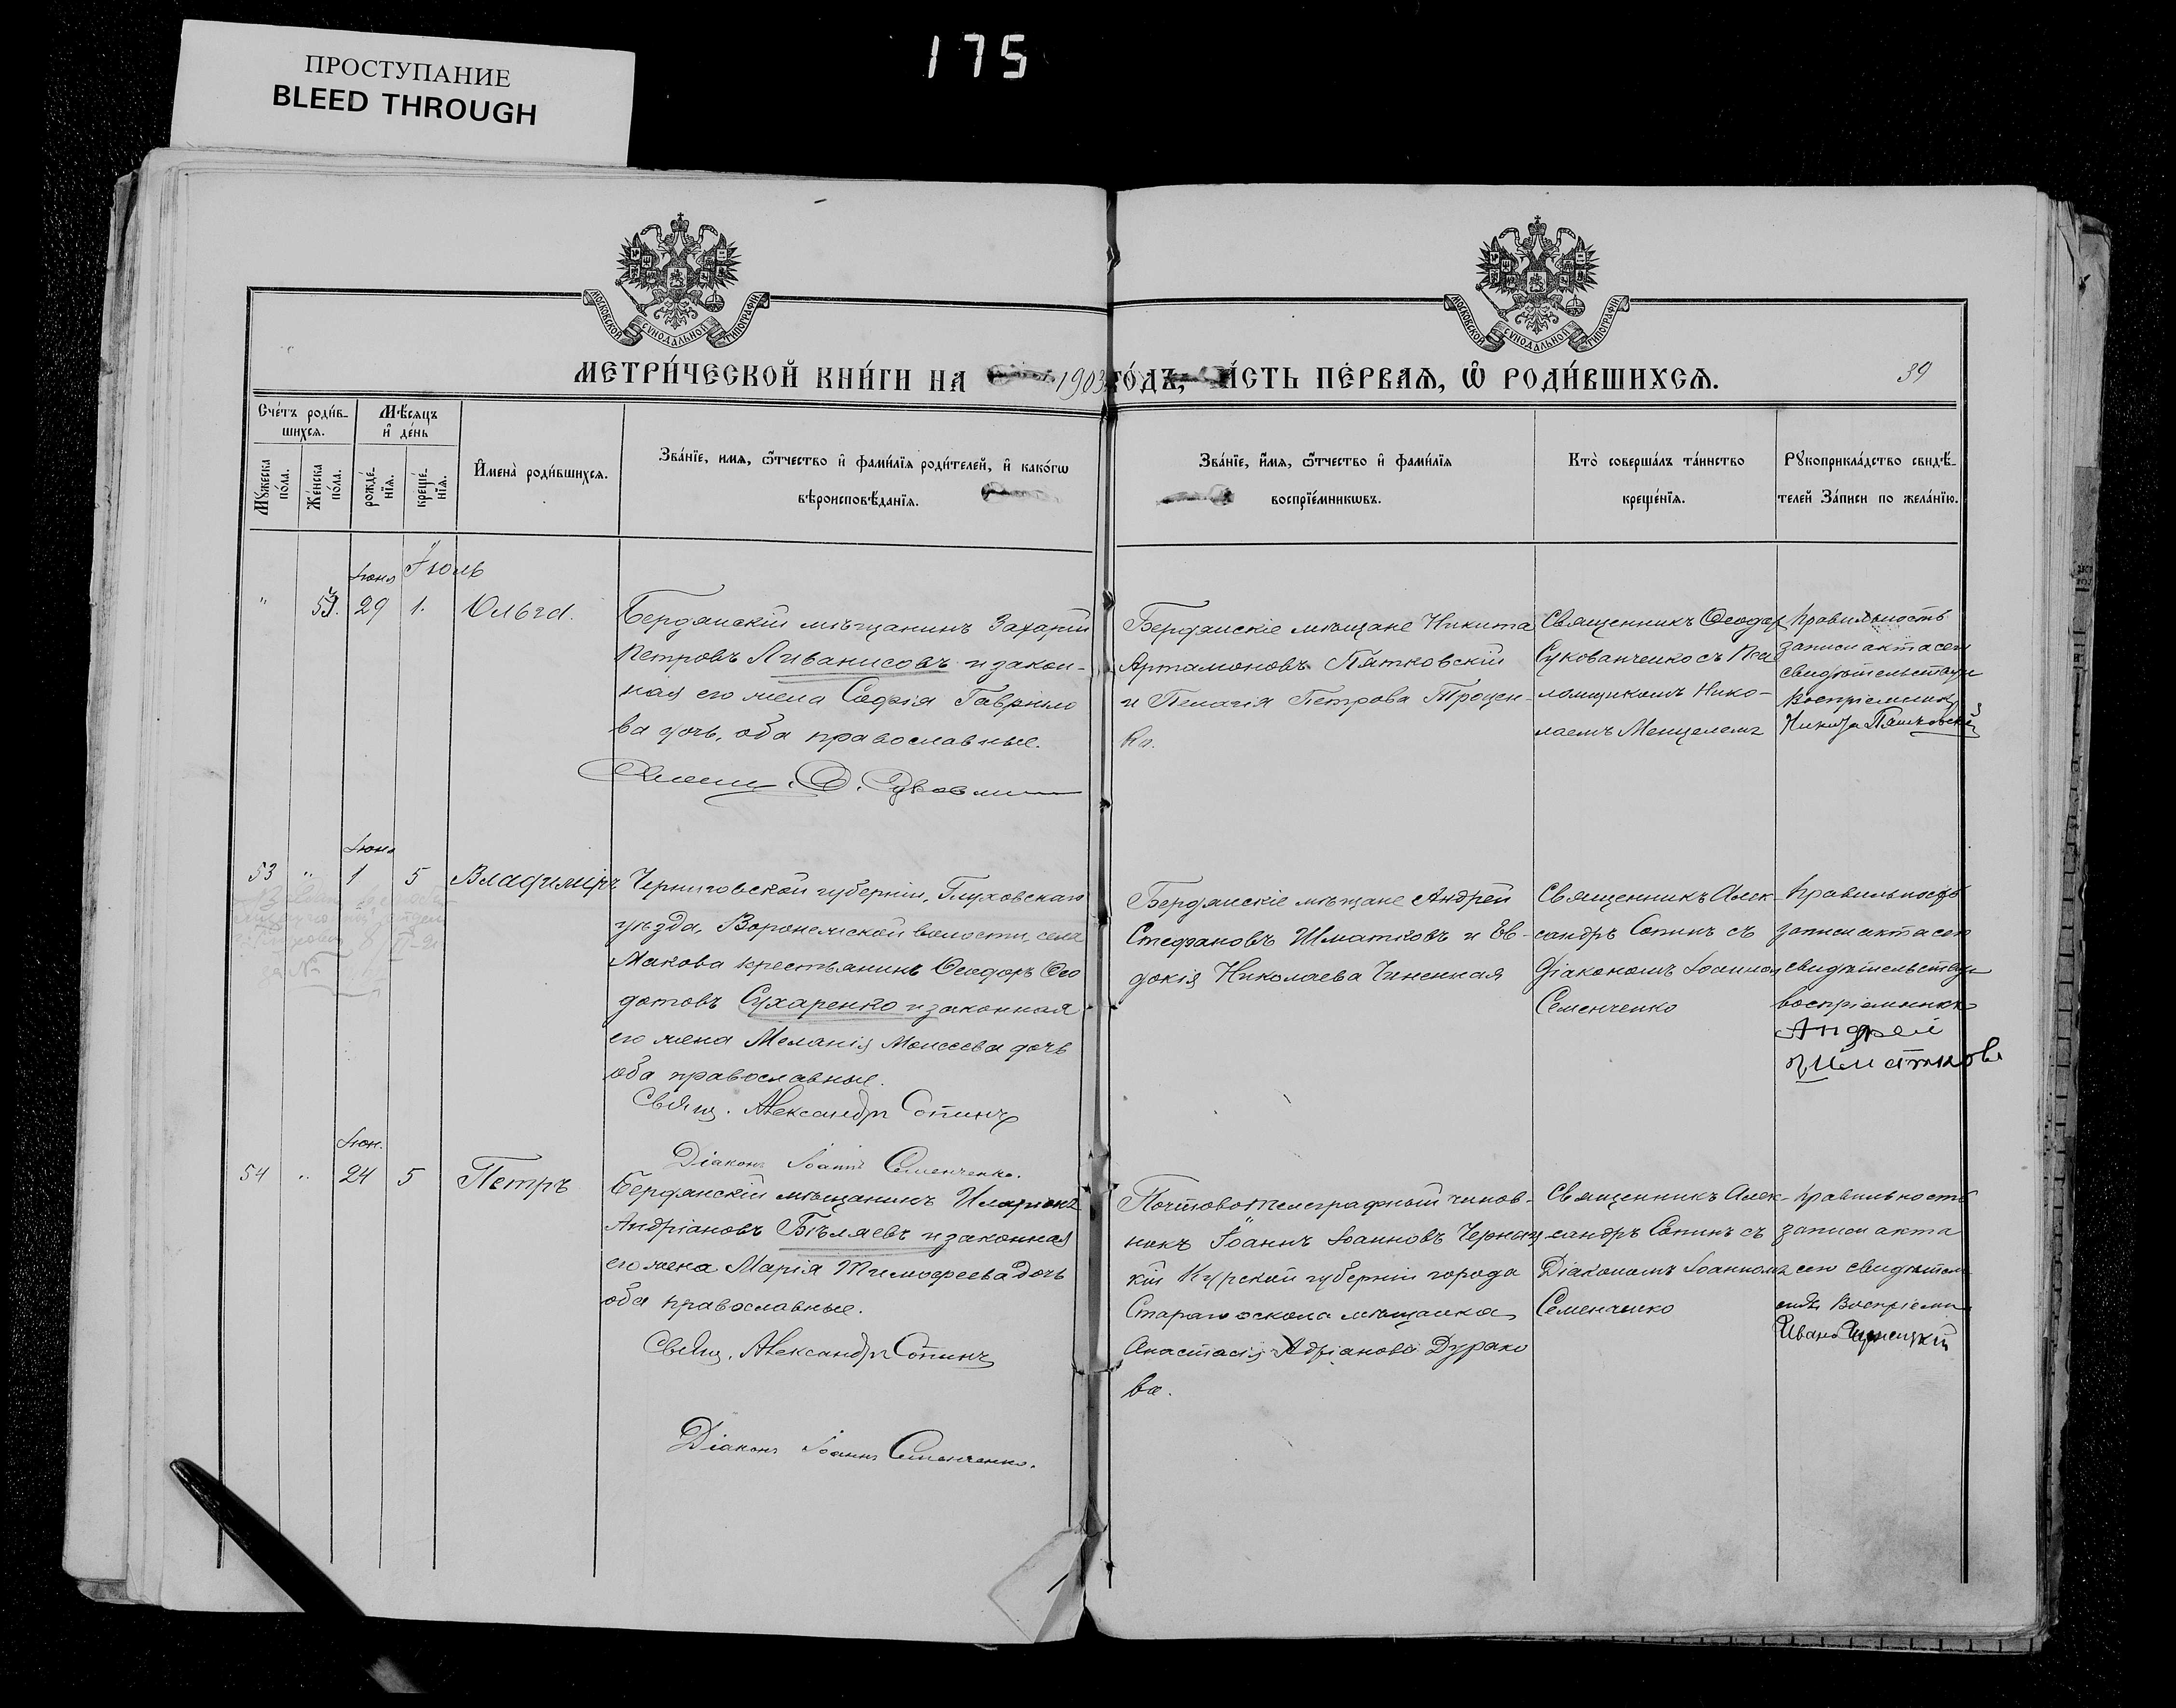 ПРОСТУПАНИЕ
BLEED THROUGH
175
МОСКОВСКОЙ СУНОДАЛЬНОЙ ТИПОГРАФІИ
МОСКОВСКОЙ СУНОДАЛЬНОЙ ТИПОГРАФІИ
МЕТРИ́ЧЕСКОЙ КНИ́ГИ НА 1903 ГО́ДЪ, ЧА́СТЬ ПЕ́РВАѦ, Ѡ РОДИ́ВШИХСѦ.
39
Сче́тъ роди́в-
шихсѧ.
Мѣ́сѧцъ
и҆ де́нь
Мꙋ́жеска
по́ла.
Же́нска
по́ла.
рожде́-
нїѧ.
креще́-
нїѧ.
И҆мена̀ роди́вшихсѧ.
Зва́нїе, имѧ, ѿтчество и҆ фами́лїѧ роди́телей, и҆ како́гѡ
вѣроисповѣ́данїѧ.
Зва́нїе, и҆́мѧ, ѿтчество и҆ фами́лїѧ
воспрїе́мникѡвъ.
Кто̀ соверша́лъ та́инство
креще́нїѧ.
Рꙋкоприкла́дство свидѣ́-
телей За́писи по жела́нїю.
Іюль
Іюня
" 53. 29 1. Ольга.
Бердянскій мѣщанинъ Захарій
Петровъ Ливанисовъ и закон-
ная его жена Софія Гаврило
ва дочь, оба православные.
Бердянскіе мѣщане Никита
Артамоновъ Пятковскій
и Пелагія Петрова Троцен-
ко.
Священникъ Ѳеодор
Сукованченко съ Пса
ломщикомъ Нико-
лаемъ Менцелемъ
Правильность
записи акта сего
свидѣтельствую
Воспріемникъ
Никита Пятковскій
Іюня
53 " 1 5 Владиміръ
Черниговской губерніи, Глуховскаго
уѣзда, Воронежской волости, села
Макова крестьянинъ Ѳеодоръ Ѳео
дотовъ Сухаренко и законная
его жена Меланія Моисеева дочь
оба православные.
Свящ. Александръ Сопинъ
Діаконъ Іоаннъ Семенченко.
Бердянскіе мѣщане Андрей
Стефановъ Шматковъ и Ев-
докія Николаева Чиненная
Священникъ Алек-
сандръ Сопинъ съ
Діакономъ Іоанном
Семенченко
Правильность
записи акта сего
свидѣтельствую
воспріемникъ
Андрей
Шматковъ
Іюн.
54 " 24 5 Петръ
Бердянскій мѣщанинъ Иларіонъ
Андріановъ Бѣляевъ и законная
его жена Марія Тимофеева дочь
оба православные.
Свящ. Александръ Сопинъ
Діаконъ Іоаннъ Семенченко.
Почтовотелеграфный чинов-
никъ Іоаннъ Іоанновъ Чернец
кій Курской губерніи города
Стараго оскола мѣщанка
Анастасія Адріанова Дурако
ва.
Священникъ Алек-
сандръ Сопинъ съ
Діакономъ Іоанномъ
Семенченко
Правильность
записи акта
сего свидѣтел
Воспріемн
Иванъ Чернецкій